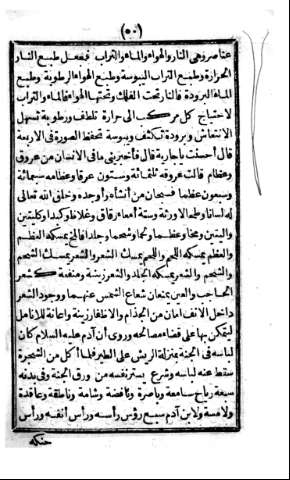 (٥٠)
عناصر وهى النار والهواء والماء والتراب فجعل طبع النار
الحرارة وطبع التراب اليبوسة وطبع الهواء الرطوبة وطبع
الماء البرودة فالنار تحت الفلك وتحتها الهواء فالماء والتراب
لاحتياج كل مركب الى حرارة تلطف ورطوبة تسهل
الانتعاش وبرودة تكثف ويبوسة تحفظ الصورة فى الاربعة
قال أحسنت ياجارية قال فأخبرينى مافى الانسان من عروق
وعظام قالت عروقه ثلثمائة وستون عرقا وعظامه سبعمائة
وسبعون عظما فسبحان من أنشأه وأوجده وخلق الله تعالى
له لسانا وطحالا ورئة وستة أمعاء رقاق وغلاظ وكبدا وكليتين
واليتين ومخا وعظما ولحما وشحما وجلدا فالمخ يمسكه العظم
والعظم يمسكه اللحم واللحم يمسك الشعر والشعر يمسك الشحم
والشحم والشعر يمسكه الجلد والشعر زينة ومنفعة كشعر
الحاجب والعين يمنعان شعاع الشمس عنهما ووجود الشعر
داخل الانف امان من الجذام والاظفار زينة واعانة للانامل
ليتمكن بها على قضاء مصالحه وروى أن آدم عليه السلام كان
لباسه فى الجنة بمنزلة الريش على الطير فلما أكل من الشجرة
سقط عنه لباسه وشرع يستر نفسه من ورق الجنة وفى بدنه
سبعة رياح سامعة وباصرة ونافضة وشامة وناطقة وعاقدة
ولامسة ولابن آدم سبع رؤس رأسه ورأس أنفه ورأس
حنكه